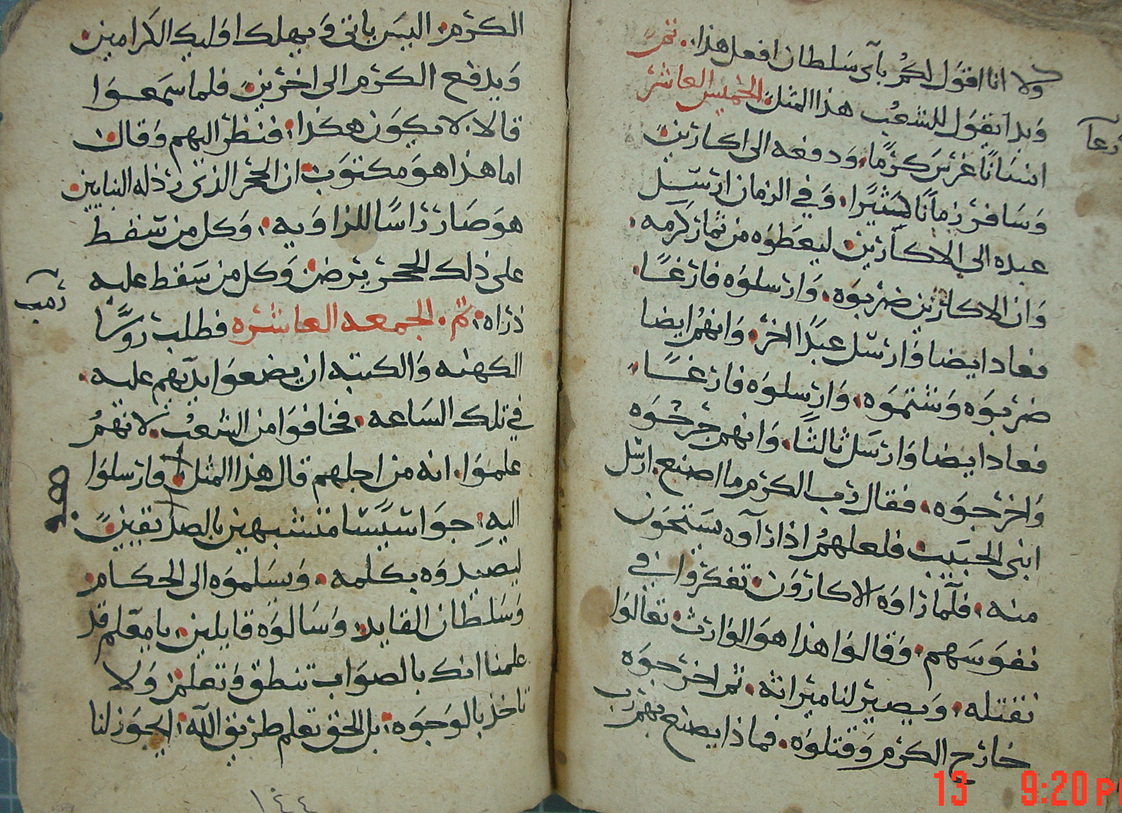 ولا انا اقول لكم باى سلطان افعل هذا. تم
وبدا يقول للشعب هذا المثل. الخميس العاشر
انسانًا غرس كرمًا. ودفعه الى اكارين
وسافر زمانًا كثيرًا. وفي الزمان ارسل
عبده الى الاكارين. ليعطوه من ثمار كرمه.
وان الاكارين ضربوه. وارسلوه فارغًا.
فعاد ايضا وارسل عبدًا اخر. وانهم ايضا
ضربوه وشتموه. وارسلوه فارغًا.
فعاد ايضا وارسل ثالثًا. وانهم جرحوه
واخرجوه. فقال رب الكرم ما اصنع. ارسل
ابنى الحبيب فلعلهم اذا راوه يستحون
منه. فلما راوه الاكارون. تفكروا في
نفوسهم. وقالوا هذا هو الوارث. تعالوا
نقتله. ويصير لنا ميراثه. ثم اخرجوه
خارج الكرم وقتلوه. فماذا يصنع بهم رب
الكرم. اليس ياتى ويهلك اوليك الكرامين
ويدفع الكرم الى اخرين. فلما سمعوا
قالا. لا يكون هكذا. فنظر اليهم وقال.
اما هذا هو مكتوب ان الحجر الذى رذله البنايين
هو صار راسًا للزاويه. وكل من سقط
على ذلك الحجر يترضض. وكل من سقط عليه
ذراه. تم. الجمعه العاشره فطلب روسًا
الكهنه والكتبه ان يضعوا ايديهم عليه.
في تلك الساعه. فخافوا من الشعب. لانهم
علموا. انه من اجلهم قال هذا المثل. وارسلوا
اليه جواسيسا متشبهين بالصديقين.
ليصيدوه بكلمه. ويسلموه الى الحكام
وسلطان القايد. وسالوه قايلين. يا معلم قد
علمنا انك بالصواب تنطق وتعلم. ولا
تاخذ بالوجوه. بل الحق تعلم طريق الله. ايجوز لنا
١٤٤
13 9:20 P